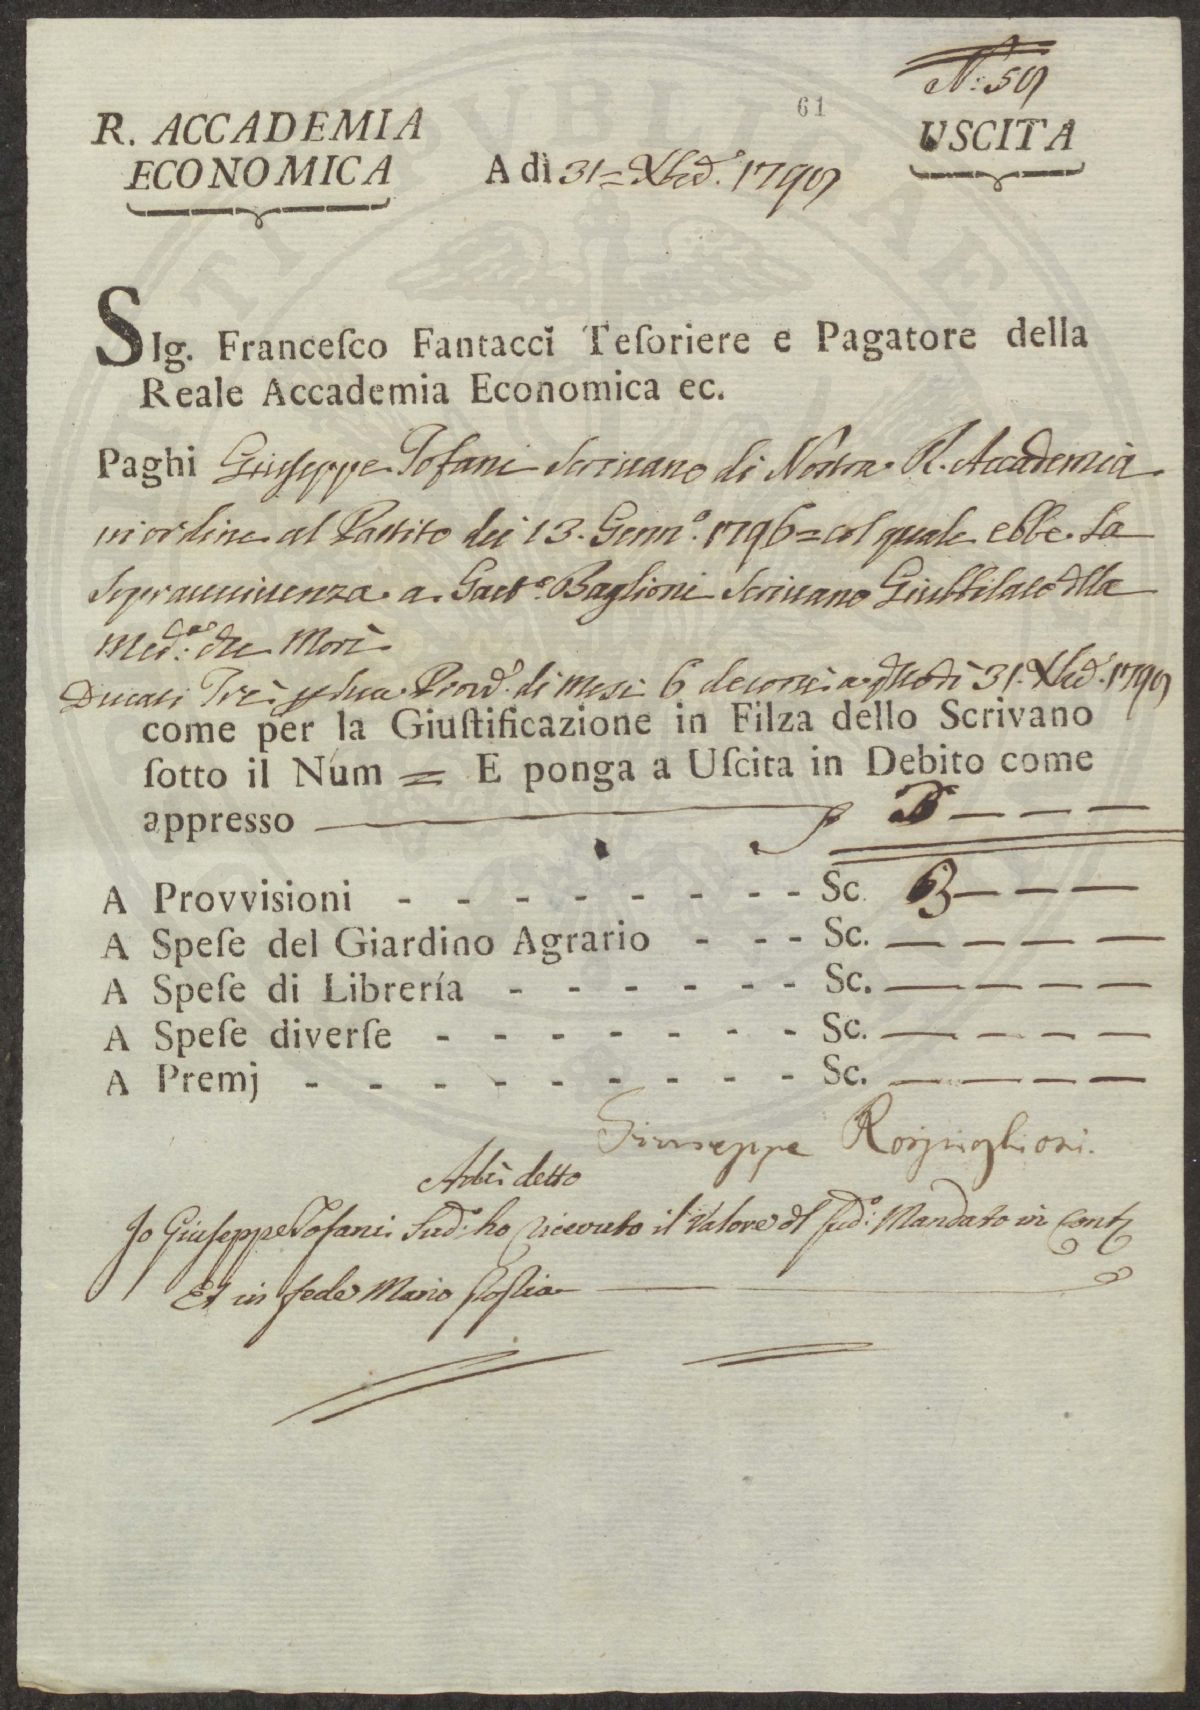 N.° 59
61
R. ACCADEMIA
ECONOMICA
A dì 31 = Xbre. 1799
USCITA
SIg. Franceſco Fantacci Teſoriere e Pagatore della
Reale Accademia Economica ec.
Paghi Giuseppe Tofani Scrivano di Nostra R. Accademia
in ordine al Partito dei 13. Genn.° 1796 = col quale ebbe la
Sopravvivenza a Gaet.° Baglioni Scrivano Giubbilato della
Med.ª che Morì
Ducati Tre p sua Provv.e di Mesi 6 decorsi a tutto dì 31. Xbre. 1799
come per la Giuſtificazione in Filza dello Scrivano
ſotto il Num = E ponga a Uſcita in Debito come
appresso 3 — — —
A Provvisioni - - - - - - - - Sc. 3 — — —
A Speſe del Giardino Agrario - - - Sc. — — — —
A Speſe di Librería - - - - - - Sc. — — — —
A Speſe diverſe - - - - - - - Sc. — — — —
A Premj - - - - - - - - - Sc. — — — —
Giuseppe Rospigliosi.
Adì detto
Io Giuseppe Tofani Sud.° ho ricevuto il Valore del sud.° Mandato in Conti
Et in fede Mano propria